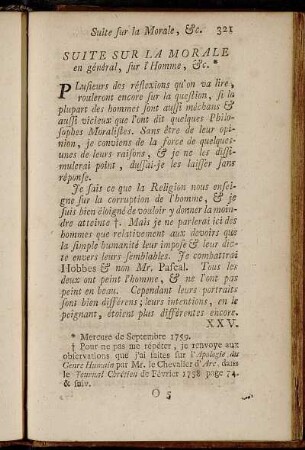 Suite sur la Morale, &c. 321
SUITE SUR LA MORALE
en général, sur l'Homme, &c. *
PLusieurs des réflexions qu'on va lire,
rouleront encore sur la question, si la
plupart des hommes sont aussi méchans &
aussi vicieux que l'ont dit quelques Philo-
sophes Moralistes. Sans être de leur opi-
nion, je conviens de la force de quelques-
unes de leurs raisons, & je ne les dissi-
mulerai point, dussai-je les laisser sans
réponse.
Je sais ce que la Religion nous ensei-
gne sur la corruption de l'homme, & je
suis bien éloigné de vouloir y donner la moin-
dre atteinte †. Mais je ne parlerai ici des
hommes que relativement aux devoirs que
la simple humanité leur impose & leur di-
cte envers leurs semblables. Je combattrai
Hobbes & non Mr. Pascal. Tous les
deux ont peint l'homme, & ne l'ont pas
peint en beau. Cependant leurs portraits
sont bien différens; leurs intentions, en le
peignant, étoient plus différentes encore.
XXV.
* Mercure de Septembre 1759.
† Pour ne pas me répéter, je renvoye aux
observations que j'ai faites sur l'Apologie du
Genre Humain par Mr. le Chevalier d'Arc, dans
le Journal Chrétien de Février 1758 page 74.
& suiv.
O 5